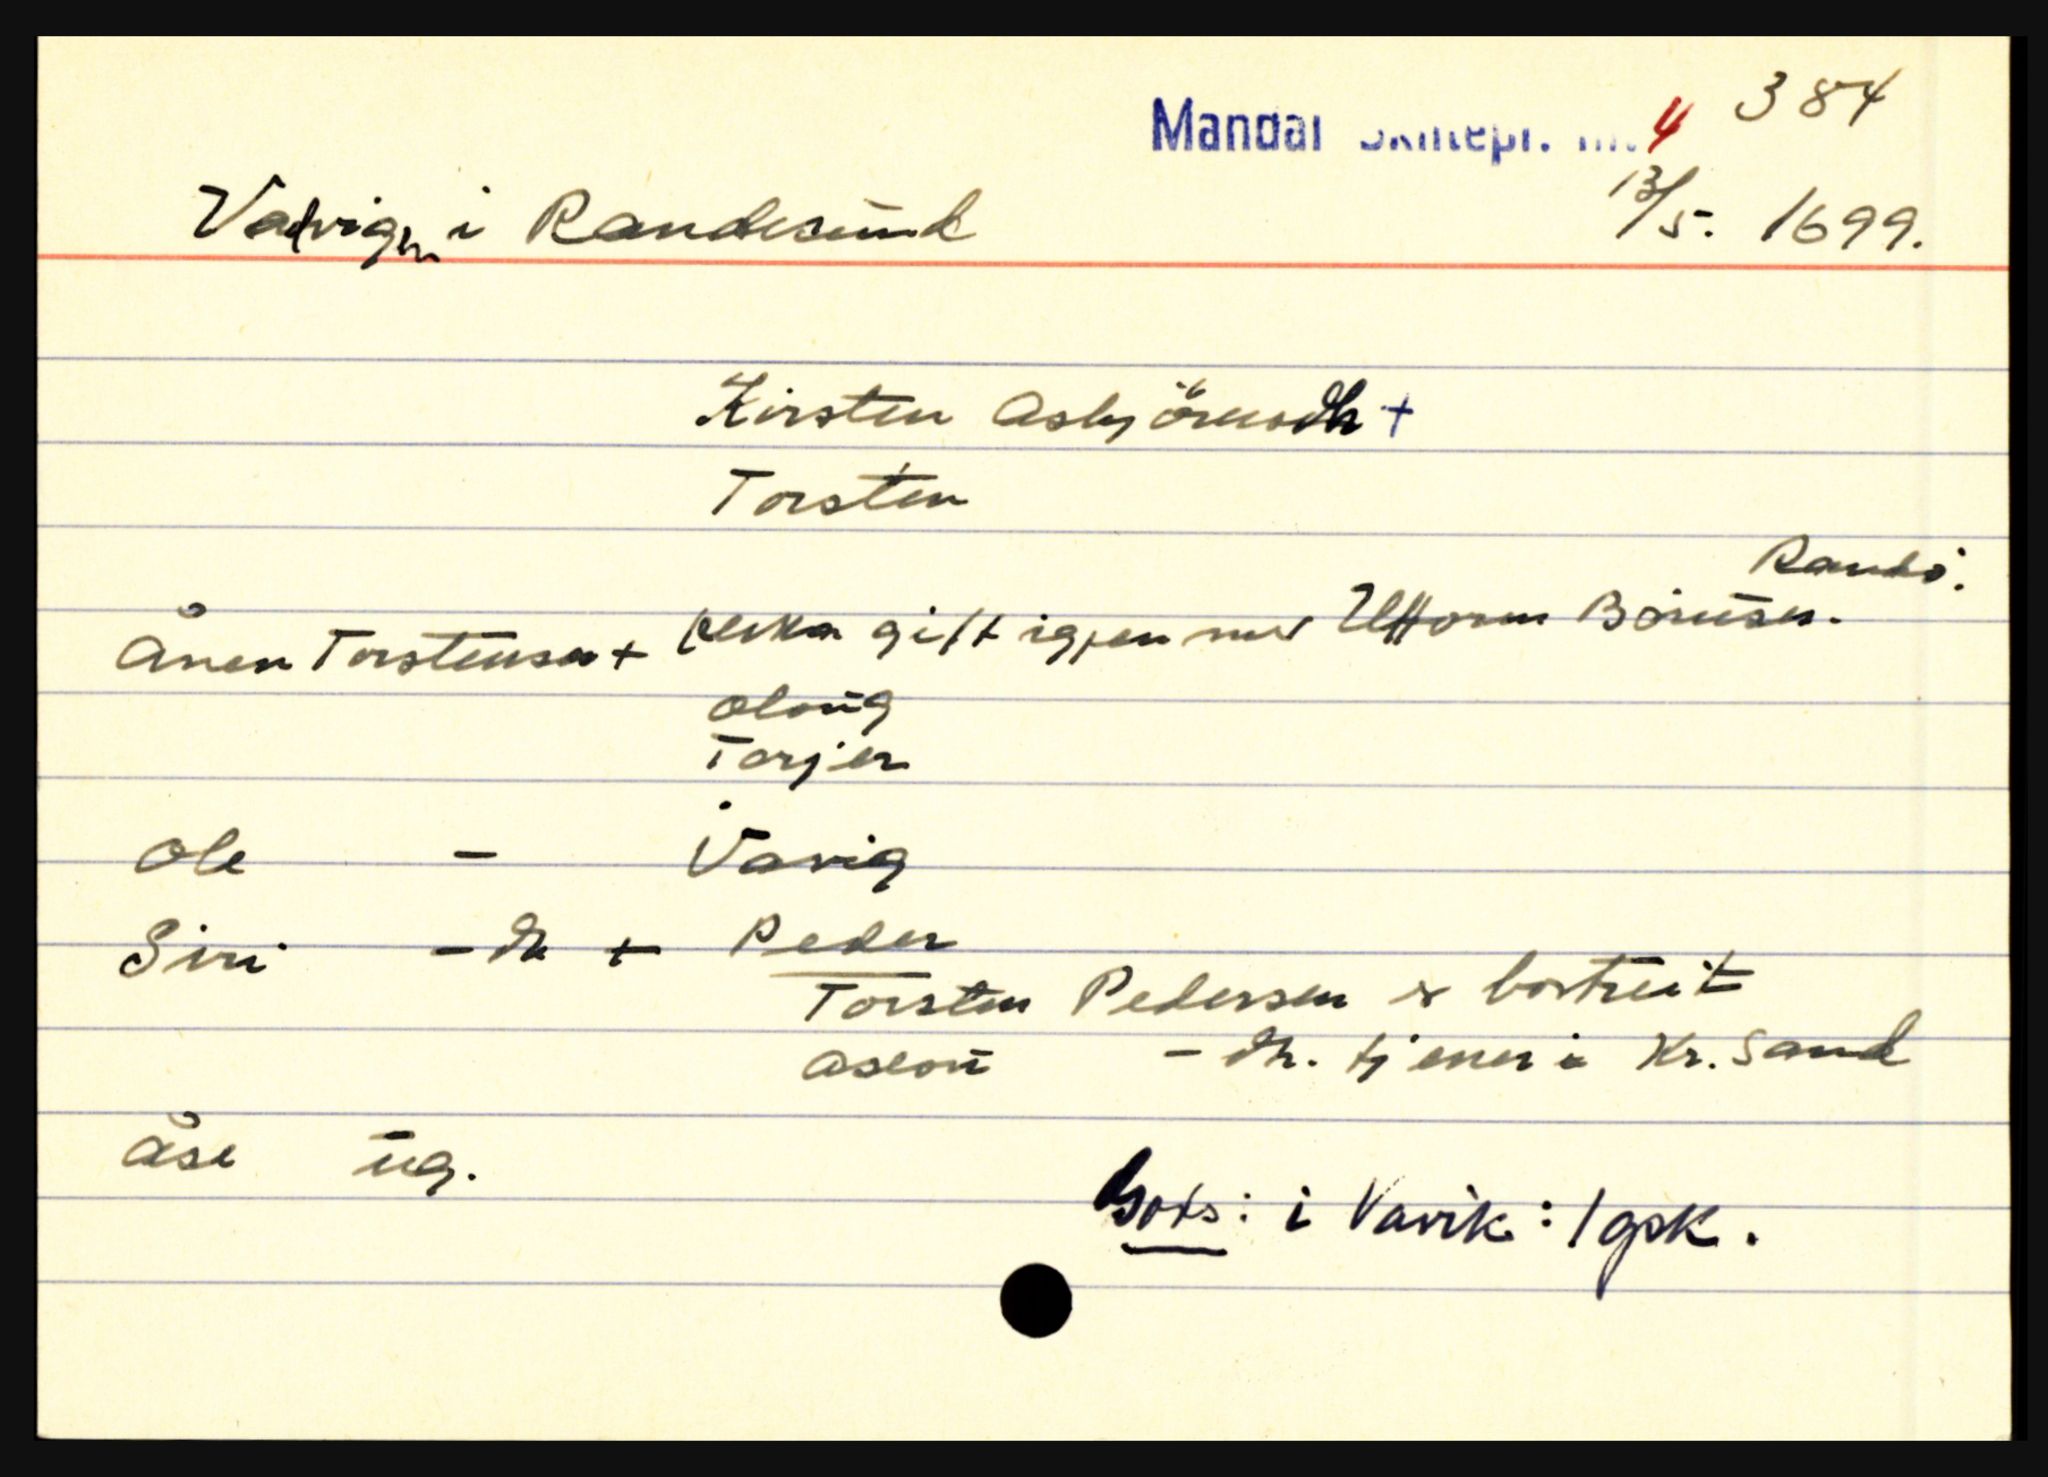 Mandal Skiftepr. nr. 4 384
Valvigen i Randesund 13/5. 1699.
Kirsten Asbjörnsdtr +
Torsten
Randö.
Ånen Torstensen + enka gift igjen med Uttorm Börüsen.
Oloüg
Torjer
Ole - i Vavig
Siri - dtr + Peder
Torsten Pedersen er bortreist
Aseoü - dtr. tjener i Kr. Sand
Åse üg.
Gots: i Vavik: 1 gsk.